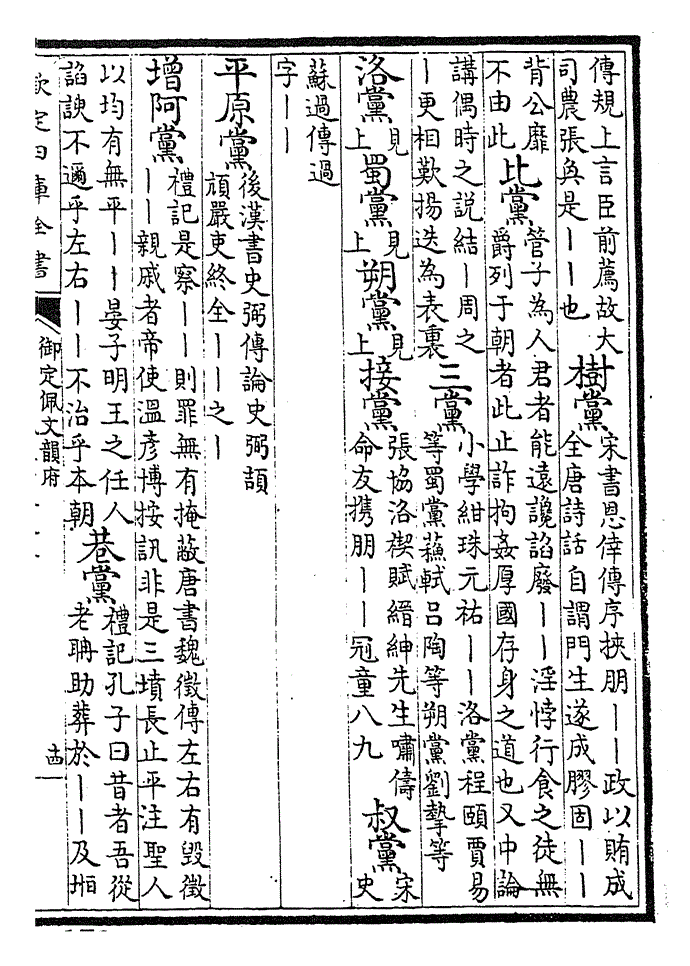 傳規上言臣前薦故大
司農張奐是丨丨也
樹黨
宋書恩倖傳序挾朋丨丨政以賄成
全唐詩話自謂門生遂成膠固丨丨
背公靡
不由此
比黨
管子為人君者能遠讒諂廢丨丨淫悖行食之徒無
爵列于朝者此止詐拘姦厚國存身之道也又中論
講偶時之説結丨周之
丨更相歎揚迭為表裏
三黨
小學紺珠元祐丨丨洛黨程頤賈易
等蜀黨蘓軾吕陶等朔黨劉摯等
洛黨
見
上
蜀黨
見
上
朔黨
見
上
接黨
張協洛禊賦縉紳先生嘯儔
命友携朋丨丨冠童八九
叔黨
宋
史
蘇過傳過
字丨丨
平原黨
後漢書史弼傳論史弼頡
頏嚴吏終全丨丨之丨
增阿黨
禮記是察丨丨則罪無有掩蔽唐書魏徵傳左右有毁徵
丨丨親戚者帝使溫彥博按訊非是三墳長止平注聖人
以均有無平丨丨晏子明王之任人
諂諛不邇乎左右丨丨不治乎本朝
巷黨
禮記孔子曰昔者吾從
老聃助葬於丨丨及堩
欽定四庫全書
御定佩文韻府